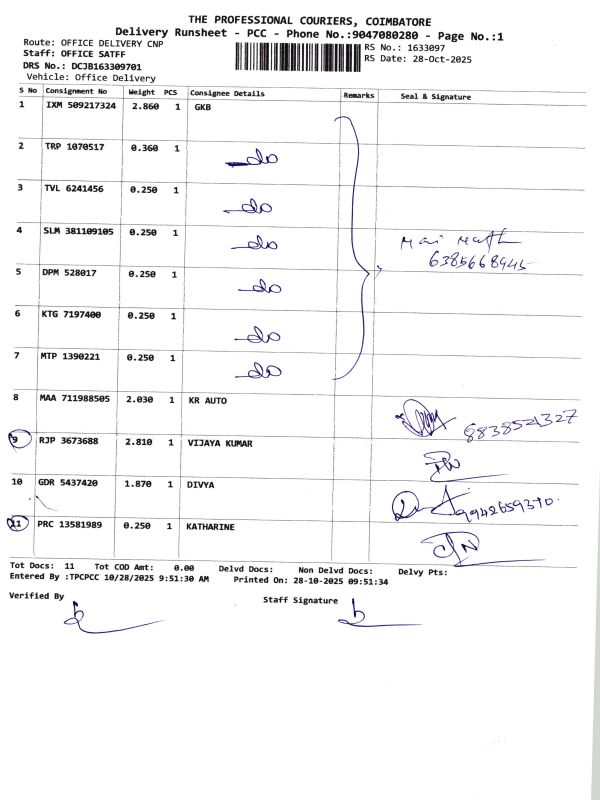 THE PROFESSIONAL COURIERS, COIMBATORE
Delivery Runsheet - PCC - Phone No.:9047080280 - Page No.:1
Route: OFFICE DELIVERY CNP
RS No.: 1633097
Staff: OFFICE SATFF
RS Date: 28-Oct-2025
DRS No.: DCJB163309701
Vehicle: Office Delivery
S No Consignment No Weight PCS Consignee Details Remarks Seal & Signature
1 IXM 509217324 2.860 1 GKB
2 TRP 1070517 0.360 1 do
3 TVL 6241456 0.250 1 do
4 SLM 381109105 0.250 1 do
6385668945
5 DPM 528017 0.250 1 do
6 KTG 7197400 0.250 1 do
7 MTP 1390221 0.250 1 do
8 MAA 711988505 2.030 1 KR AUTO 8838521327
9 RJP 3673688 2.810 1 VIJAYA KUMAR
10 GDR 5437420 1.870 1 DIVYA 9942659370
11 PRC 13581989 0.250 1 KATHARINE
Tot Docs: 11 Tot COD Amt: 0.00 Delvd Docs: Non Delvd Docs: Delvy Pts:
Entered By :TPCPCC 10/28/2025 9:51:30 AM Printed On: 28-10-2025 09:51:34
Verified By Staff Signature